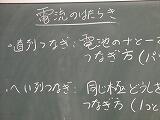 電流のはたらき
・直列つなぎ: 電池の+と－
つなぎ方(パ
・へい列つなぎ: 同じ極どうしを
つなぎ方(1コと